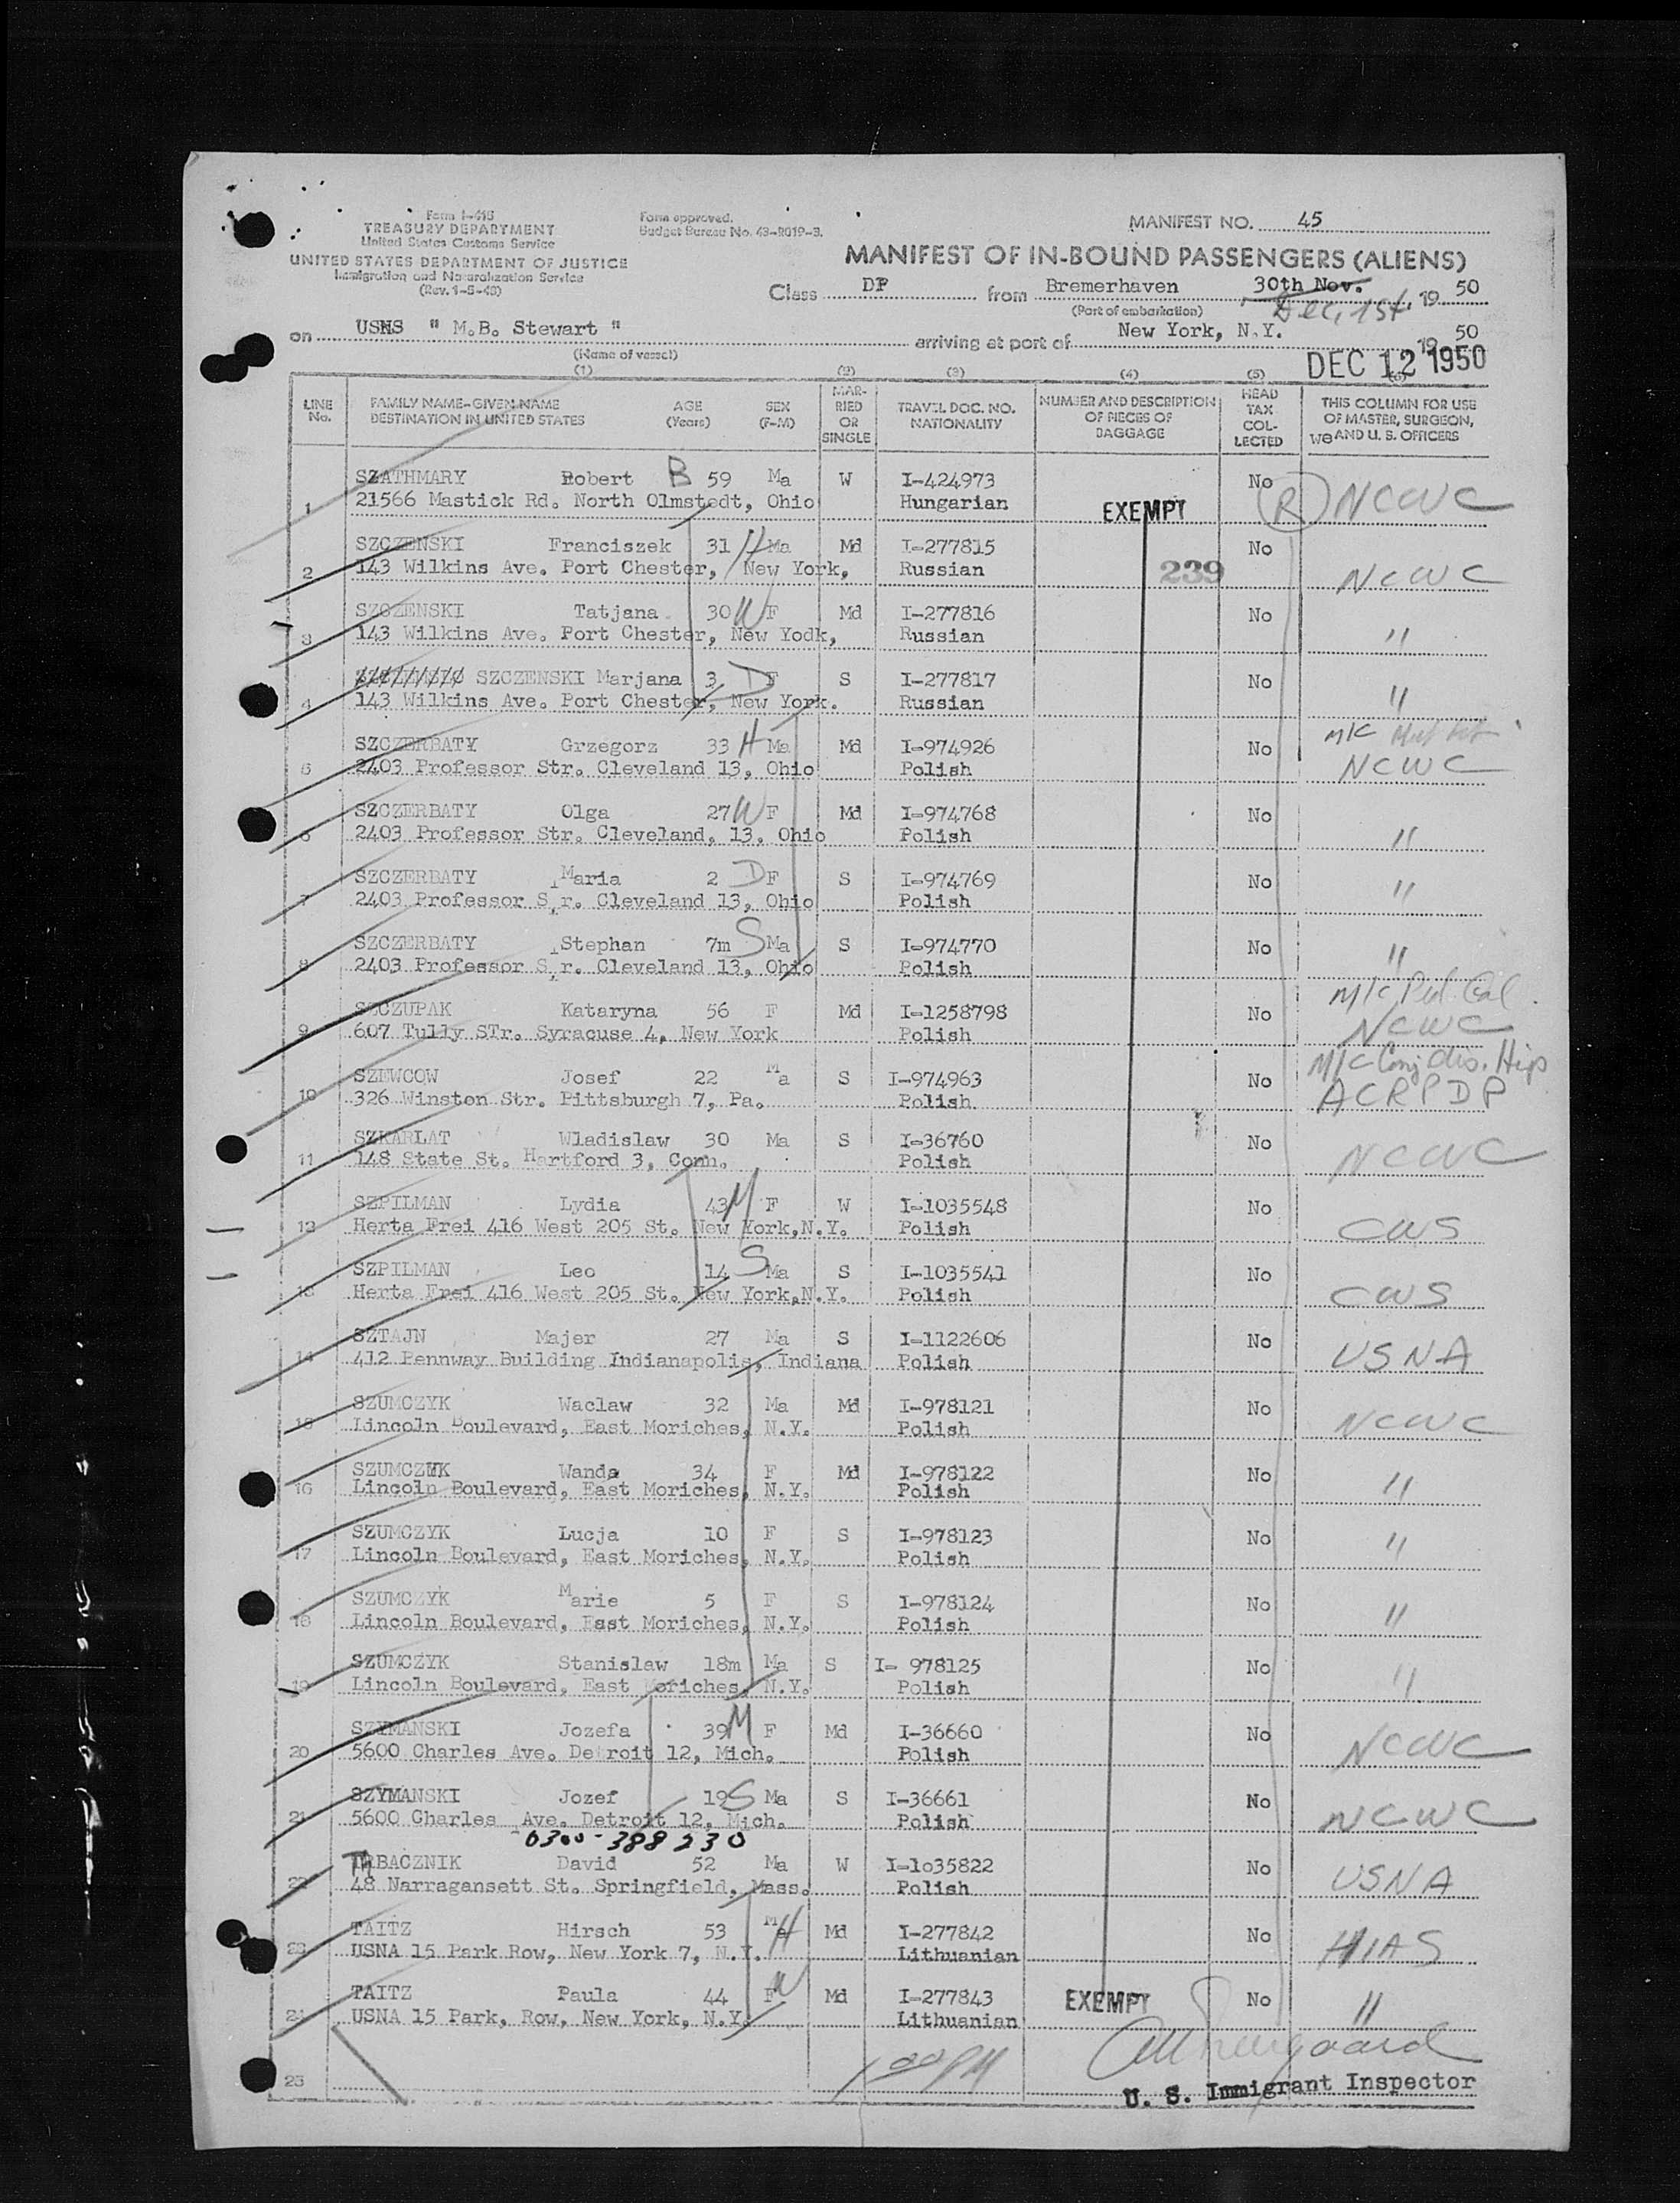 Form I-415
TREASURY DEPARTMENT
United States Customs Service
UNITED STATES DEPARTMENT OF JUSTICE
Immigration and Naturalization Service
(Rev. 1-5-48)
Form approved.
Budget Bureau No. 43-R019-3.
MANIFEST NO. 45
MANIFEST OF IN-BOUND PASSENGERS (ALIENS)
Class DP from Bremerhaven 30th Nov. 19 50
(Port of embarkation) Dec. 1st
on USNS " M.B. Stewart " arriving at port of New York, N.Y. 19 50
(Name of vessel) DEC 12 1950
(1) (2) (3) (4) (5) (6)
LINE No. FAMILY NAME-GIVEN NAME DESTINATION IN UNITED STATES AGE (Years) SEX (F-M) MARRIED OR SINGLE TRAVEL DOC. NO. NATIONALITY NUMBER AND DESCRIPTION OF PIECES OF BAGGAGE HEAD TAX COLLECTED THIS COLUMN FOR USE OF MASTER, SURGEON, AND U. S. OFFICERS
SZATHMARY Robert B 59 Ma W I-424973 No R NCWC
1 21566 Mastick Rd. North Olmstedt, Ohio Hungarian EXEMPT
SZCZENSKI Franciszek 31 H Ma Md I-277815 No
2 143 Wilkins Ave. Port Chester, New York, Russian 239 NCWC
SZCZENSKI Tatjana 30 W F Md I-277816 No
3 143 Wilkins Ave. Port Chester, New Yodk, Russian "
SZCZENSKI Marjana 3 D F S I-277817 No
4 143 Wilkins Ave. Port Chester, New York. Russian "
SZCZERBATY Grzegorz 33 H Ma Md I-974926 No M/C
5 2403 Professor Str. Cleveland 13, Ohio Polish NCWC
SZCZERBATY Olga 27 W F Md I-974768 No
6 2403 Professor Str. Cleveland, 13, Ohio Polish "
SZCZERBATY Maria 2 D F S I-974769 No
7 2403 Professor S,r. Cleveland 13, Ohio Polish "
SZCZERBATY Stephan 7m S Ma S I-974770 No
8 2403 Professor S,r. Cleveland 13, Ohio Polish "
SZCZUPAK Kataryna 56 F Md I-1258798 No M/C Pul. Cal.
9 607 Tully STr. Syracuse 4, New York Polish NCWC
SZEWCOW Josef 22 Ma S I-974963 No M/C Cong dis. Hip
10 326 Winston Str. Pittsburgh 7, Pa. Polish ACRPDP
SZKARLAT Wladislaw 30 Ma S I-36760 No
11 148 State St. Hartford 3, Conn. Polish NCWC
SZPILMAN Lydia 43 M F W I-1035548 No
12 Herta Frei 416 West 205 St. New York,N.Y. Polish CWS
SZPILMAN Leo 14 S Ma S I-1035541 No
13 Herta Frei 416 West 205 St. New York,N.Y. Polish CWS
SZTAJN Majer 27 Ma S I-1122606 No
14 412 Pennway Building Indianapolis, Indiana Polish USNA
SZUMCZYK Waclaw 32 Ma Md I-978121 No
15 Lincoln Boulevard, East Moriches, N.Y. Polish NCWC
SZUMCZYK Wanda 34 F Md I-978122 No
16 Lincoln Boulevard, East Moriches, N.Y. Polish "
SZUMCZYK Lucja 10 F S I-978123 No
17 Lincoln Boulevard, East Moriches, N.Y. Polish "
SZUMCZYK Marie 5 F S I-978124 No
18 Lincoln Boulevard, East Moriches, N.Y. Polish "
SZUMCZYK Stanislaw 18m Ma S I- 978125 No
19 Lincoln Boulevard, East Moriches, N.Y. Polish "
SZYMANSKI Jozefa 39 M F Md I-36660 No
20 5600 Charles Ave. Detroit 12, Mich. Polish NCWC
SZYMANSKI Jozef 19 S Ma S I-36661 No
21 5600 Charles Ave. Detroit 12, Mich. Polish NCWC
0300-388230
TABACZNIK David 52 Ma W I-1o35822 No
22 48 Narragansett St. Springfield, Mass. Polish USNA
TAITZ Hirsch 53 Ma H Md I-277842 No
23 USNA 15 Park Row, New York 7, N.Y. Lithuanian HIAS
TAITZ Paula 44 F W Md I-277843 EXEMPT No
24 USNA 15 Park, Row, New York, N.Y. Lithuanian "
25
U. S. Immigrant Inspector